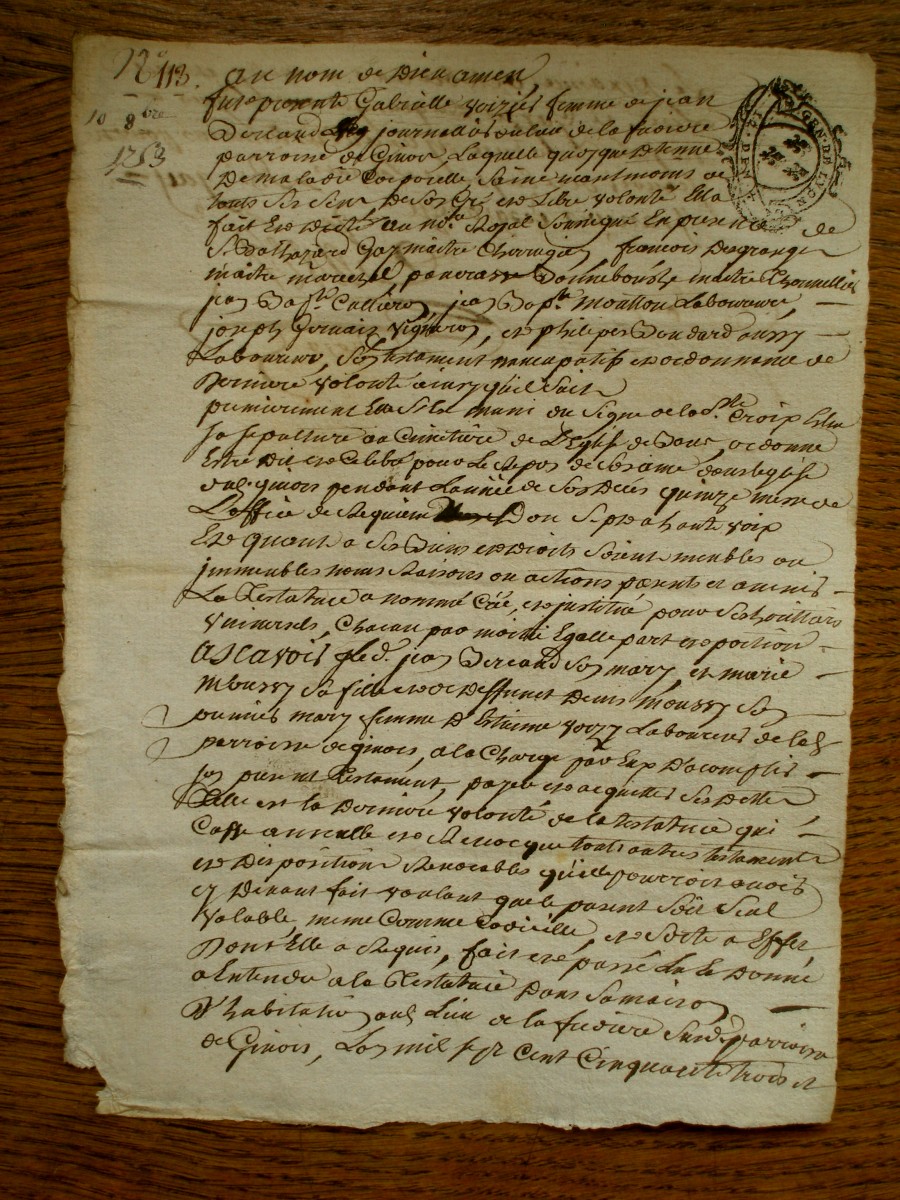 N° 113.
10 8bre
1753
GEN. DE LYON
au nom de Dieu amen
fut presente Gabrielle femme de jean
journalier du lieu de la
parroisse de laquelle quoyque detenue
De maladie Corporelle Saine neantmoins de
touts Ses Sens De Son Gré et Libre volonté Ella
fait Et Dicté au no.re Royal Soussigné En presence de
Sr Balthazard maitre Chirurgien francois Desgranges
maitre marechal, maitre
jean Bapte jean Bapte Laboureur,
joseph Gervais Vigneron, et philipes aussy
Laboureur, Son testament nuncupatif et ordonnance de
Derniere volonté ainsy quil suit
premierement Elle S'est muni du Signe de la Ste Croix Eslu
sa sepulture au Cimetière de L'Eglise de ordonne
Estre Dit et Celebré pour le Repos de Son ame dans legise
pendant L'année de Son Deces quinze messe de
L'office de Requiem Don Sept a haute voix
Et quant a Ses Biens et Droits Soient meubles ou
immeubles noms Raisons ou actions presents et avenir
La Testatrice a nommé Créé, et justitué pour Ses heritiers
Vniversels, Chacun par moitié Egalle part et portion
Ascavoir led. jean Son mary, et marie
Moussy Sa fille et de Deffunct Denis Moussy Son
premier mary femme D'Estienne Laboureur de lad.
parroisse de a la Charge par Eux D'acomplir
son present Testament, payer et acquitter Ses Dettes
Telle est la Derniere volonté de la testatrice qui
Casse annulle et Revocque touts autres testaments
et Dispositions Revocables quelle pourroit avoir
cy Devant fait voulant que le present Soit Seul
Valable meme Comme Codicille, et Sorte a Effet
Dont Elle a Requis, fait et passé Lu Et Donné
a Entendre a la Testatrice Dans Sa maison
D'habitation aud. Lieu de la Susd. parroisse
de L'an mil sept Cent Cinquante trois et